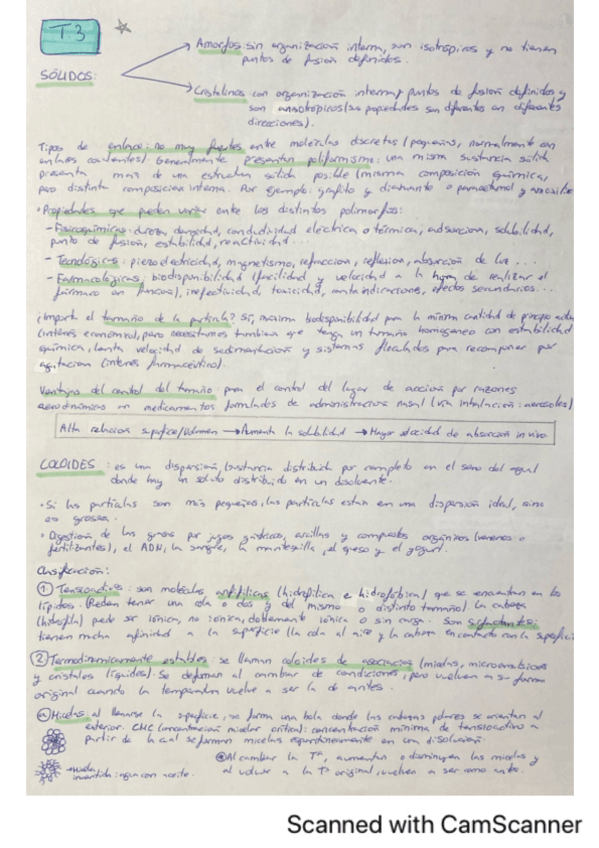 T.3
Amorfos sin organización interna, son isotrópicos y no tienen
puntos de fusión definidos.
SÓLIDOS:
Cristalinos con organización interna y puntos de fusión definidos y
son anisotrópicos (sus propiedades son diferentes en diferentes
direcciones).
Tipos de enlace: no muy fuertes entre moléculas discretas (pequeñas, normalmente con
enlaces covalentes). Generalmente presentan polimorfismo: una misma sustancia sólida
presenta más de una estructura sólida posible (misma composición química,
pero distinta composición interna. Por ejemplo: grafito y diamante o paracetamol y
• Propiedades que pueden variar entre los distintos polimorfos:
- Fisicoquímicas: dureza, densidad, conductividad eléctrica o térmica, adsorción, solubilidad,
punto de fusión, estabilidad, reactividad...
- Tecnológicas: piezoelectricidad, magnetismo, refracción, reflexión, absorción de luz...
- Farmacológicas: biodisponibilidad (facilidad y velocidad a la hora de realizar el
fármaco su función), inefectividad, toxicidad, contraindicaciones, efectos secundarios...
¿Importa el tamaño de la partícula? Sí, máxima biodisponibilidad para la mínima cantidad de principio
(interés económico), pero necesitamos también que tenga un tamaño homogéneo con estabilidad
química, lenta velocidad de sedimentación y sistemas floculados para recomponer por
agitación (interés farmacéutico).
Ventajas del control del tamaño: para el control del lugar de acción por razones
aerodinámicas en medicamentos formulados de administración nasal (vía inhalación: aerosoles)
Alta relación superficie/volumen → Aumenta la solubilidad → Mayor velocidad de absorción in vivo
COLOIDES: es una dispersión (sustancia distribuida por completo en el seno del
donde hay un soluto distribuido en un disolvente.
• Si las partículas son más pequeñas, las partículas están en una dispersión ideal, sino
es grosera.
• Digestión de las grasas por jugos gástricos, arcillas y compuestos orgánicos (venenos o
fertilizantes), el ADN, la sangre, la mantequilla, el queso y el yogurt.
Clasificación:
① Tensioactivos: son moléculas anfifílicas (hidrofílica e hidrofóbica) que se encuentran en los
lípidos. (Pueden tener una cola o dos y del mismo o distinto tamaño). La cabeza
(hidrofila) puede ser iónica, no iónica, doblemente iónica o sin carga. Son surfactantes:
tienen mucha afinidad a la superficie (la cola al aire y la cabeza en contacto con la superficie
② Termodinámicamente estables: se llaman coloides de asociación (micelas, microemulsiones
y cristales líquidos). Se deforman al cambiar de condiciones, pero vuelven a su forma
original cuando la temperatura vuelve a ser la de antes.
ⓐ Micelas: al llenarse la superficie, se forma una bola donde las cabezas polares se orientan al
exterior. CMC (concentración micelar crítica): concentración mínima de tensioactivo a
partir de la cual se forman micelas espontáneamente en una disolución.
Al cambiar la Tª, aumentan o disminuyen las micelas y
→ micela invertida: agua con aceite.
al volver a la Tª original, vuelven a ser como antes.
Scanned with CamScanner